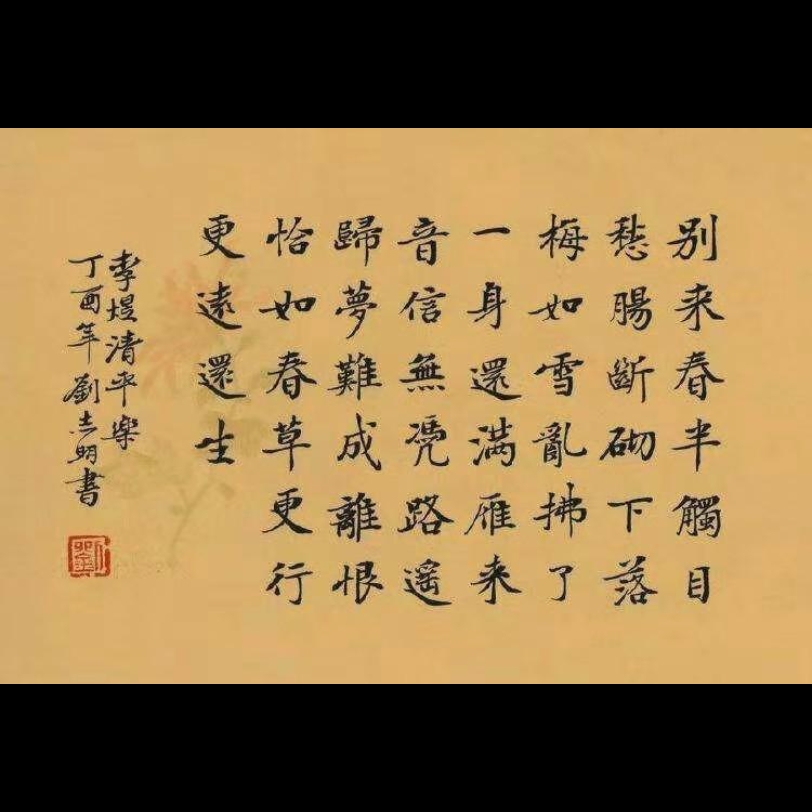 別来春半觸目
愁腸斷砌下落
梅如雪亂拂了
一身還满雁来
音信無凭路遥
歸夢難成離恨
恰如春草更行
更遠還生
李煜清平樂
丁酉年劉志明書
劉